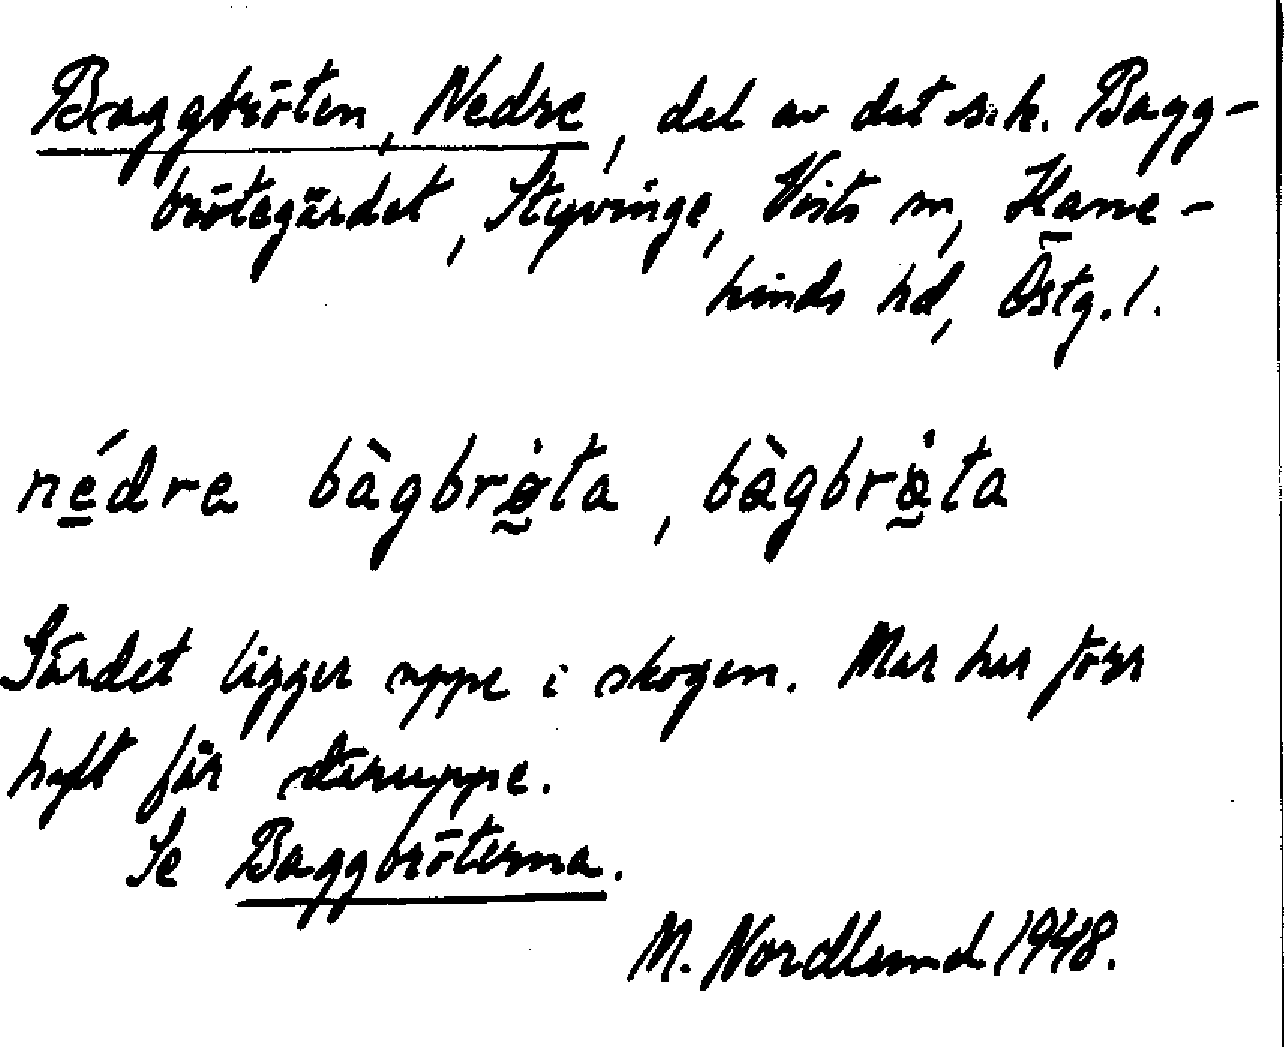 Baggbröten, Nedre, del av det s.k. Bagg-
brötegärdet, Styvinge, Vists sn, Hane-
kinds hd, Östg. l.
nédre bàgbrø̀ta, bàgbrø̀ta
Gärdet ligger uppe i skogen. Man har förr
haft får däruppe.
Se Baggbröterna.
M. Nordlund 1948.